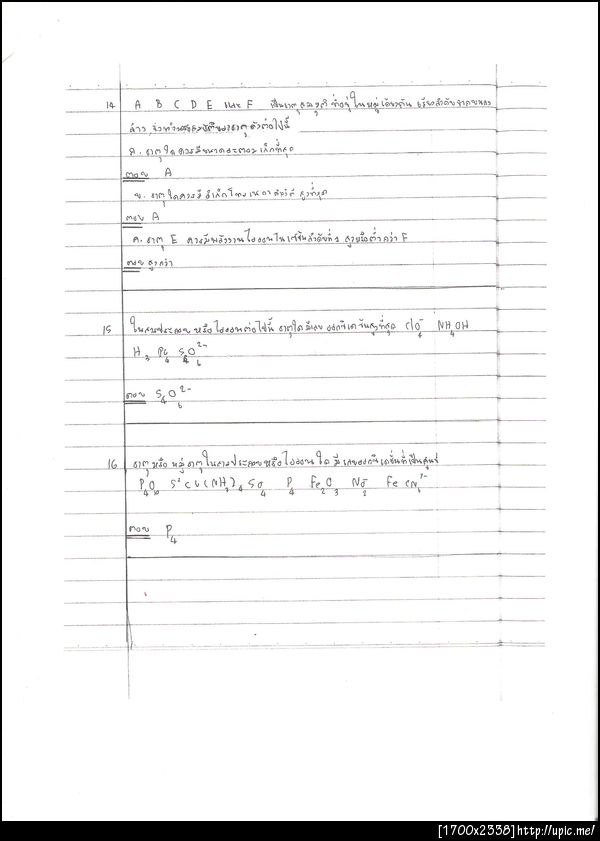 14 A B C D E และ F เป็นธาตุสมมุติ ที่อยู่ในหมู่เดียวกัน เรียงลำดับจากบนลง
ล่าง จงทำนายสมบัติของธาตุตัวต่อไปนี้
ก. ธาตุใดควรมีขนาดอะตอมเล็กที่สุด
ตอบ A
ข. ธาตุใดควรมีอิเล็กโทรเนกาติวิตี สูงที่สุด
ตอบ A
ค. ธาตุ E ควรมีพลังงานไอออนไนเซชันลำดับที่ 1 สูงหรือต่ำกว่า F
ตอบ สูงกว่า
15 ในสารประกอบ หรือไอออนต่อไปนี้ ธาตุใดมีเลขออกซิเดชันสูงที่สุด ClO4- NH4OH
H3 PO4 S4O6 2-
ตอบ S4O6 2-
16 ธาตุหรือหมู่ธาตุในสารประกอบหรือไอออนใด มีเลขออกซิเดชั่นที่เป็นศูนย์
P4 Fe2O3
ตอบ P4
[1700x2338]http://upic.me/